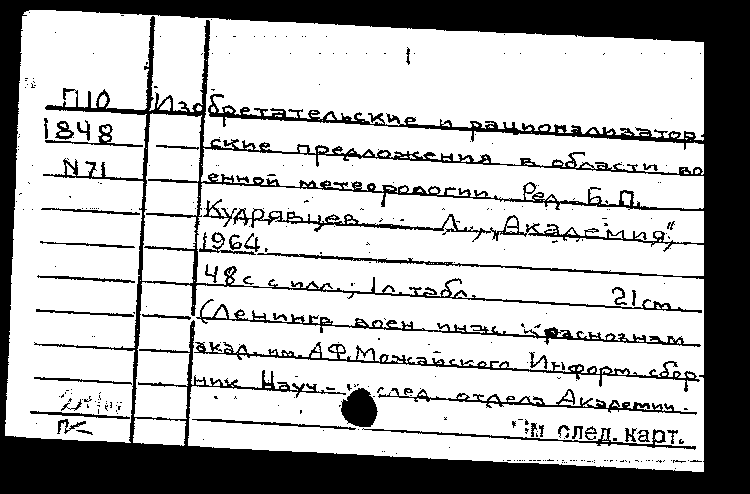 1
П10 Изобретательские и рационализатор-
1848 ские предложения в области во
N71 енной метеорологии. Ред. Б. П.
Кудрявцев. Л., „Академия“,
1964.
48 с. с илл.; 1 л. табл. 21 см.
(Ленингр воен инж. Краснознам
акад. им. А.Ф. Можайского Информ. сбор-
ник Науч.- и след. отдела Академии.
См след. карт.